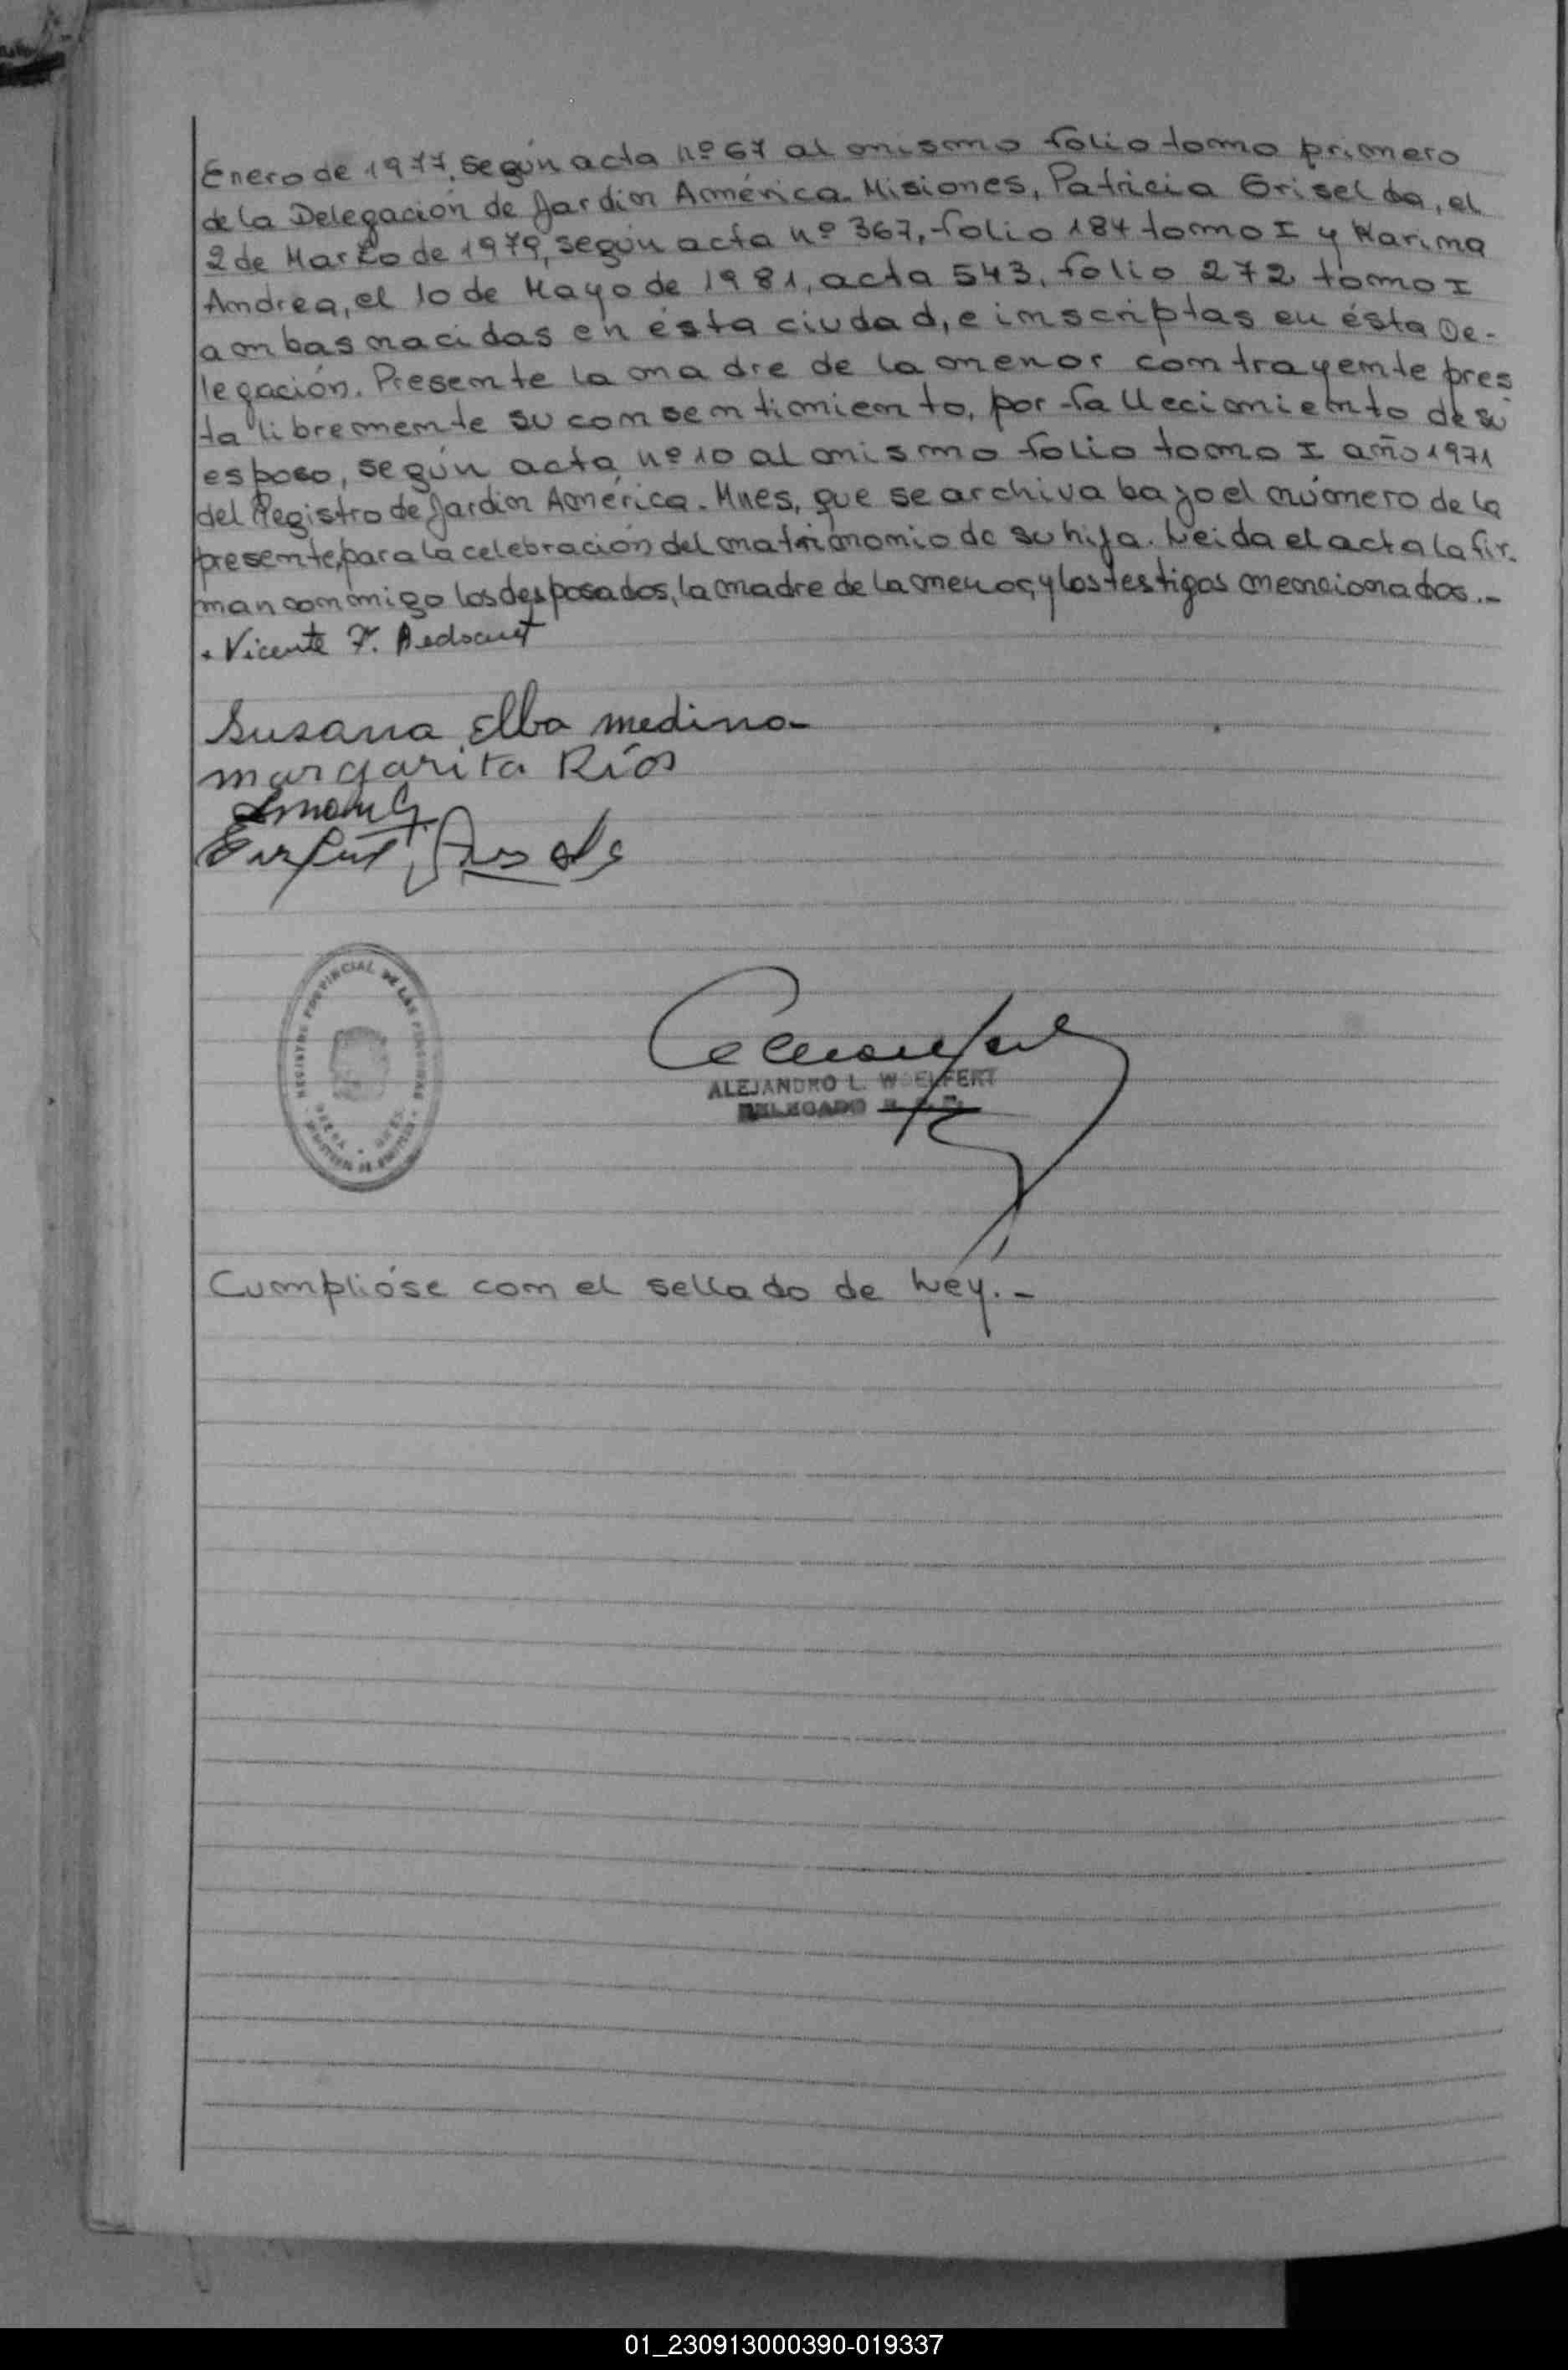 Enero de 1977, según acta nº 67 al mismo folio tomo primero
de la Delegación de Jardín América. Misiones, Patricia Griselda, el
2 de Marzo de 1979, según acta nº 367, folio 184 tomo I y Karina
Andrea, el 10 de Mayo de 1981, acta 543, folio 272 tomo I
ambas nacidas en ésta ciudad, e inscriptas en ésta De-
legación. Presente la madre de la menor contrayente pres
ta libremente su consentimiento, por fallecimiento de su
esposo, según acta nº 10 al mismo folio tomo I año 1971
del Registro de Jardín América. Mnes, que se archiva bajo el número de la
presente, para la celebración del matrimonio de su hija. Leida el acta la fir-
man conmigo los desposados, la madre de la menor, y los testigos mencionados.-
Vicente
Susana Elba medina
margarita Ríos
REGISTRO PROVINCIAL DE LAS PERSONAS
ALEJANDRO L. WOELFERT
DELEGADO
Cumplióse con el sellado de Ley.-
01_230913000390-019337